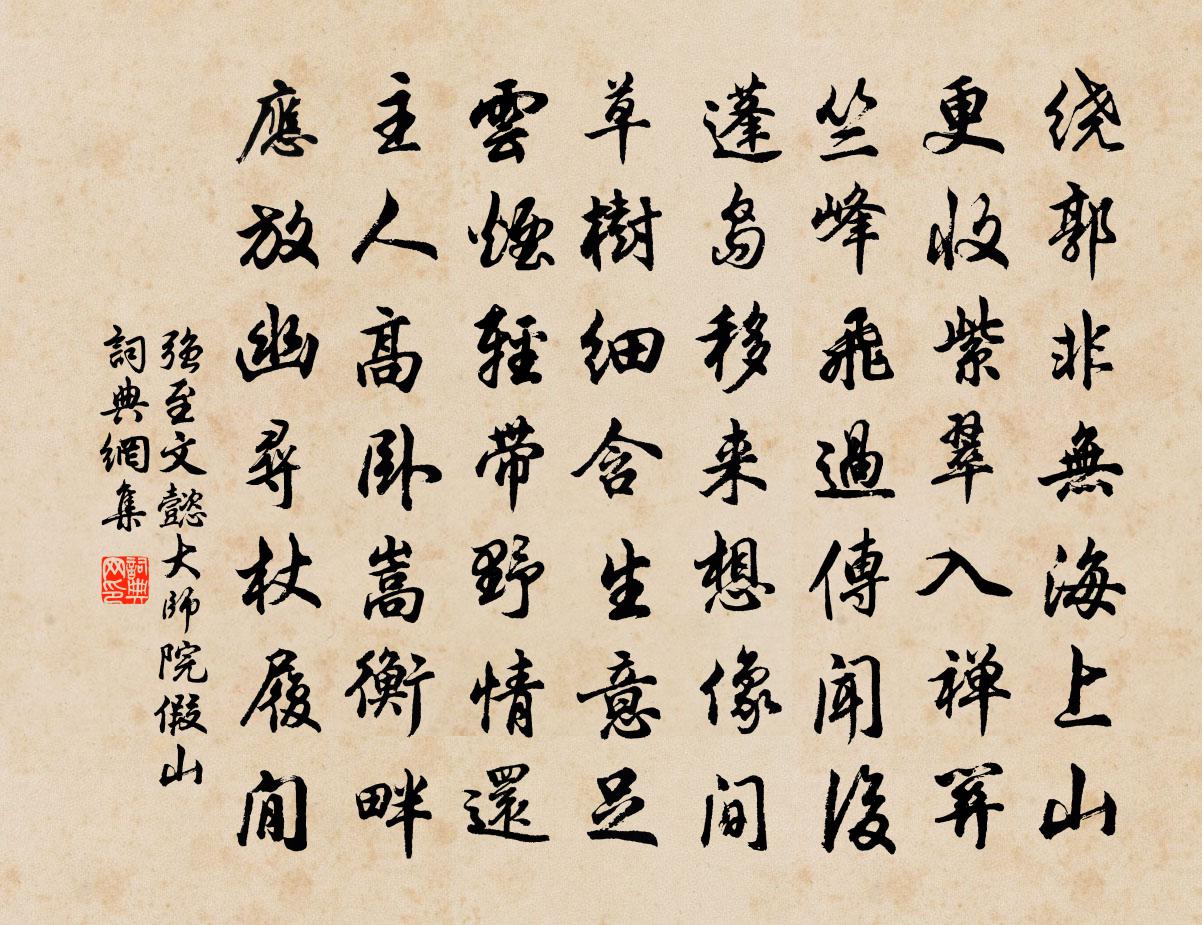 绕郭非無海上山
更收紫翠入禅關
竺峰飛過傳聞後
蓬島移来想像間
草樹細含生意足
雲煙輕帶野情還
主人高卧嵩衡畔
應放幽尋杖履閒
強至文懿大師院假山
詞典網集
詞典网印